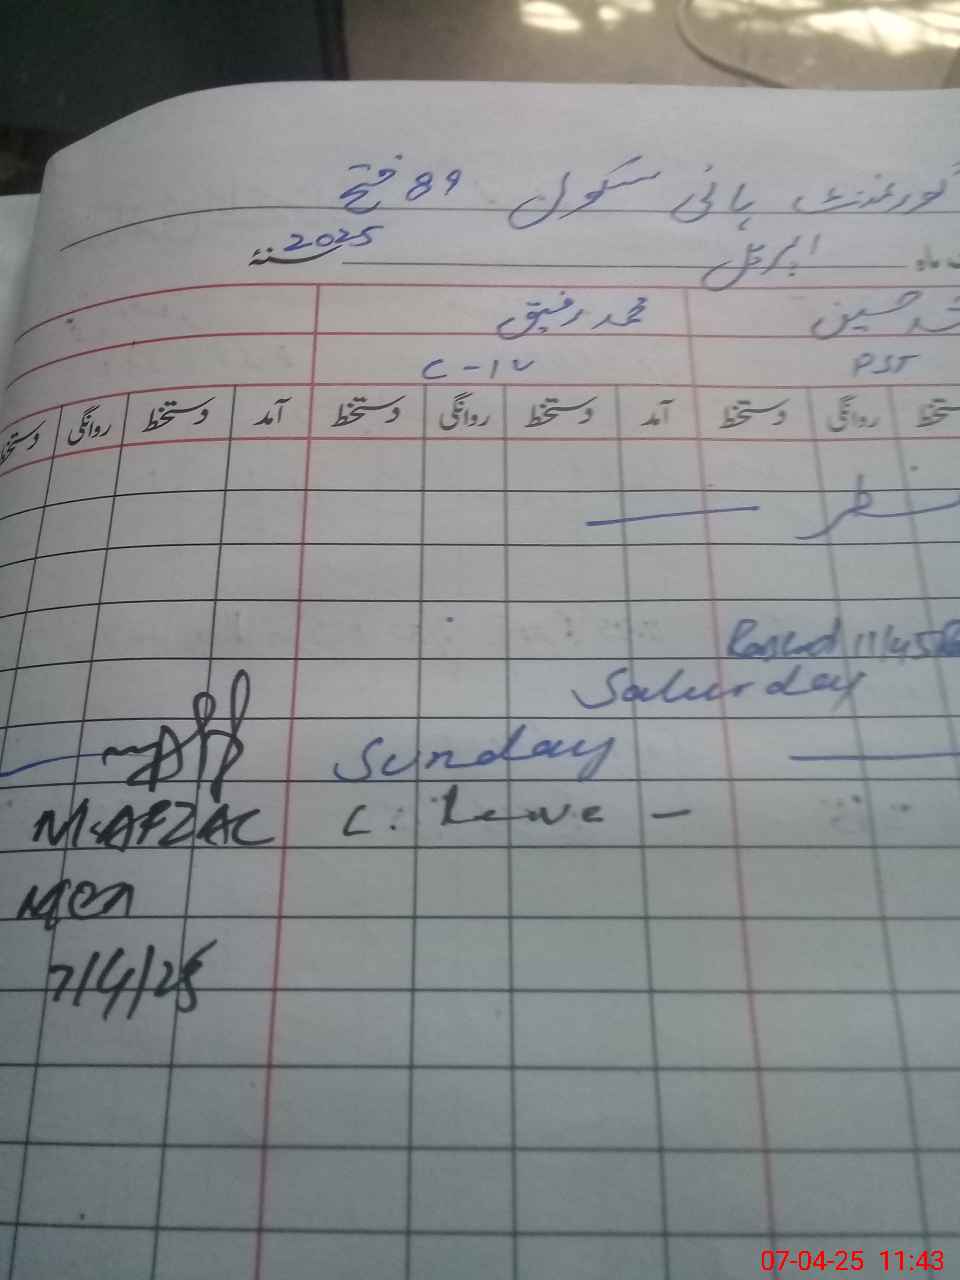 گورنمنٹ ہائی سکول 89 فتح
ماہ اپریل سنہ 2025
حسین محمد رفیق
PST C-IV
دستخط روانگی دستخط آمد دستخط روانگی دستخط آمد دستخط روانگی دستخط
11/45
Saturday
Sunday
M.AFZAL C. Leave -
7/4/25
07-04-25 11:43